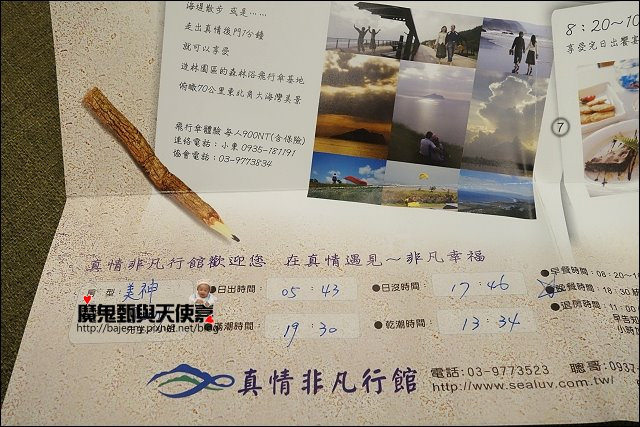 海堤散步 或是……
走出真情後門1分鐘
就可以享受
造林園區的森林浴飛行傘基地
俯瞰70公里東北角大海灣美景
飛行傘體驗 每人900NT(含保險)
連絡電話：小東 0935-781191
協會電話：03-9773834
8：20~10
享受完日出饗宴
7
真情非凡行館歡迎您 在真情遇見~非凡幸福
房 型： 美神
●日出時間 05：43
●日沒時間 17：46
●早餐時間：08：20~1
晚餐時間：18：30
●滿潮時間 19：30
●乾潮時間 13：34
●退房時間：11：00
早告知
小時加
魔鬼甄與天使嘉
http://bajenny.pixnet.net/blog
真情非凡行館
電話：03-9773523 聰哥：0937
http://www.sealuv.com.tw/